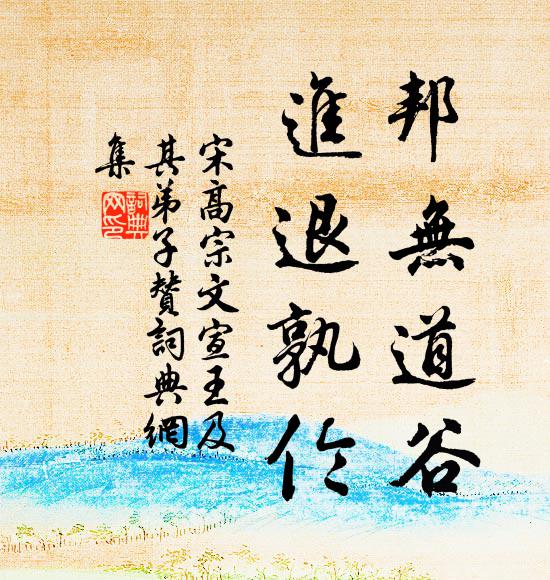 邦無道谷
進退孰伶
宋高宗文宣王及
其弟子贊詞典網
集
詞典
网印